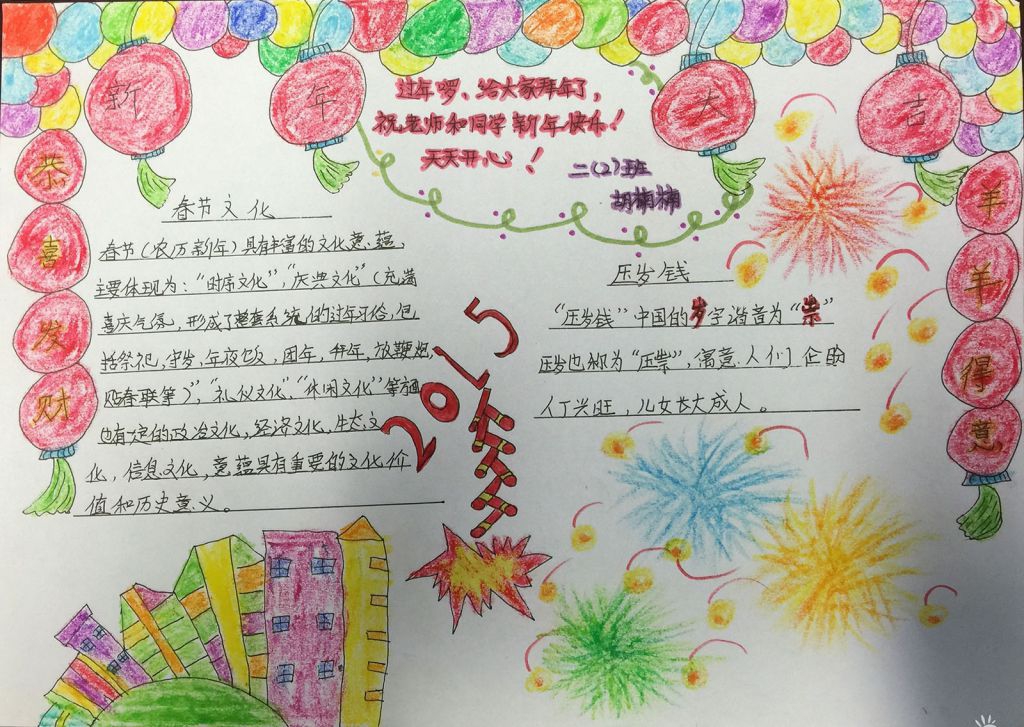 新年大吉
恭喜发财
羊羊得意
过年啰、给大家拜年了,
祝老师和同学新年快乐!
天天开心!
二(2)班
胡楠楠
春节文化
春节(农历新年)具有丰富的文化意蕴,
主要体现为:“时序文化”,“庆典文化”(充满
喜庆气氛,形成了整套系统的过年习俗,包
括祭祀,守岁,年夜饭,团年,拜年,放鞭炮,
贴春联等)”,“礼仪文化”,“休闲文化”等方面
也有一定的政治文化,经济文化,生态文
化,信息文化,意蕴具有重要的文化价
值和历史意义。
2015
压岁钱
“压岁钱”中国的岁字谐音为“祟”
压岁也称为“压祟”,寓意人们企盼
人丁兴旺,儿女长大成人。